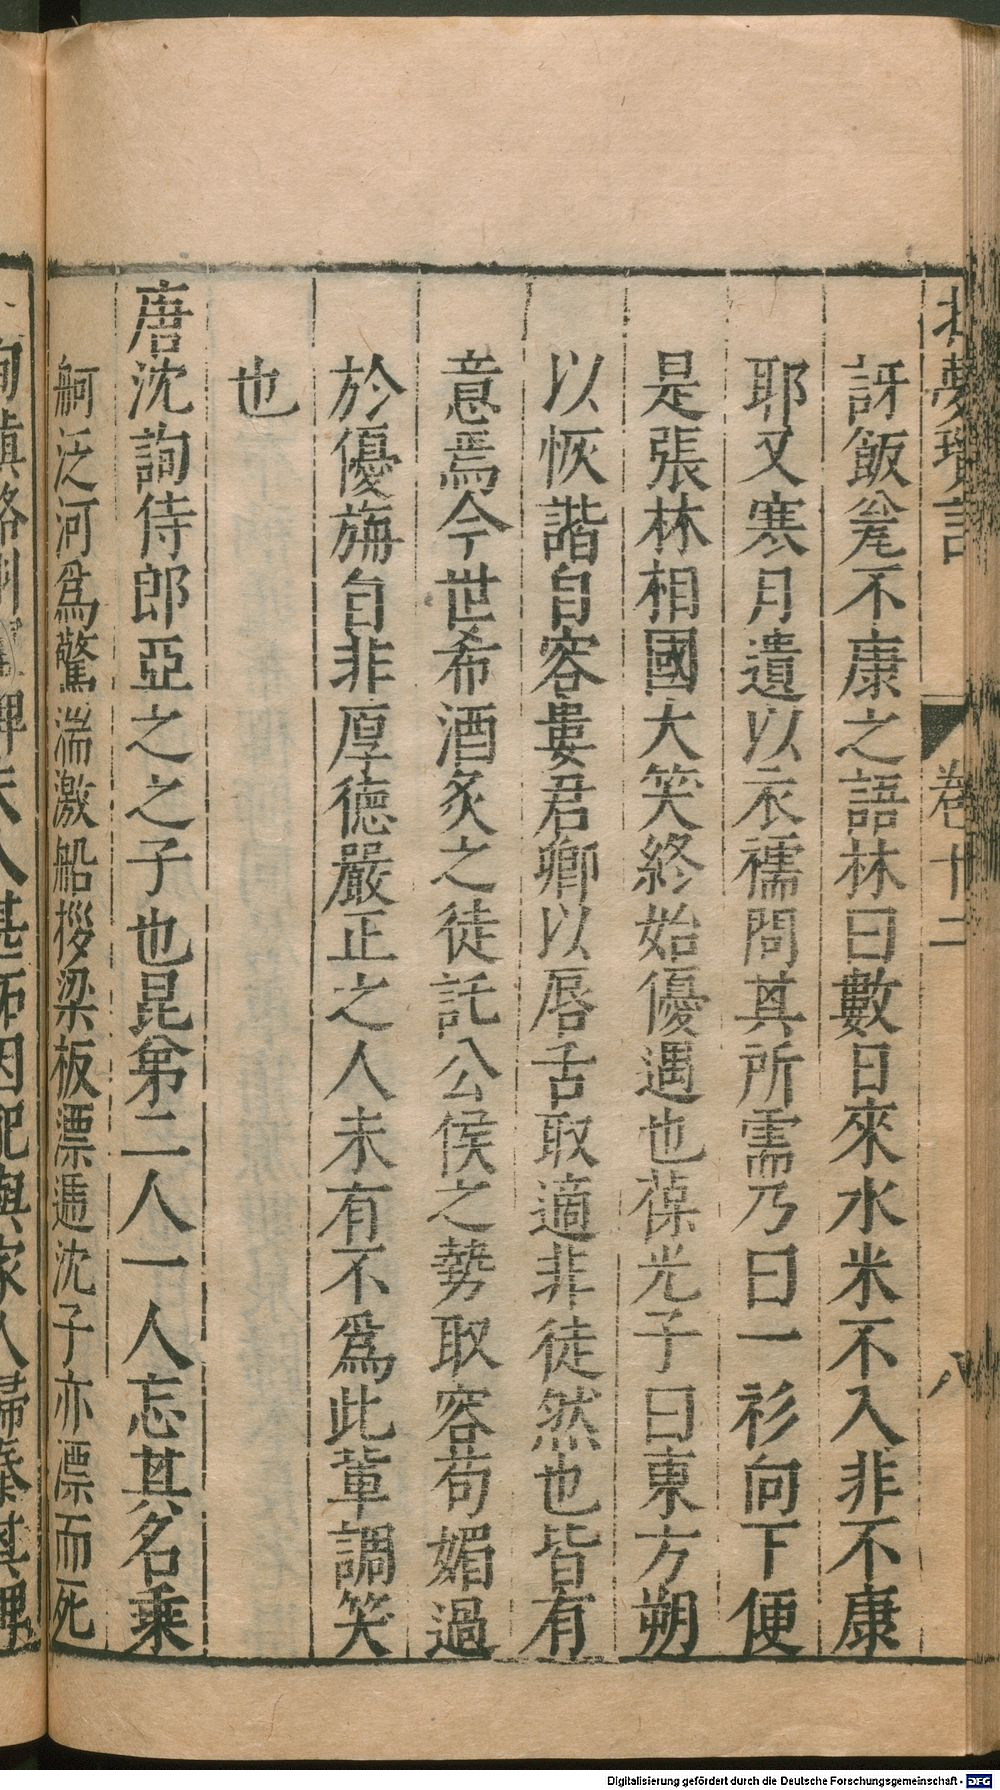 北夢瑣言 卷十二 八
訝飯瓮不康之語林曰數日來水米不入非不康
耶又寒月遺以衣襦問其所需乃曰一衫向下便
是張林相國大笑終始優遇也葆光子曰東方朔
以恢諧自容婁君卿以唇舌取適非徒然也皆有
意焉今世希酒炙之徒託公侯之勢取容苟媚過
於優旃自非厚德嚴正之人未有不爲此輩調笑
也
唐沈詢侍郎亞之之子也昆弟二人一人忘其名乘
舸泛河爲驚湍激船撥梁板漂遞沈子亦漂而死
人甚 因配與家人歸秦其
Digitalisierung gefördert durch die Deutsche Forschungsgemeinschaft - DFG